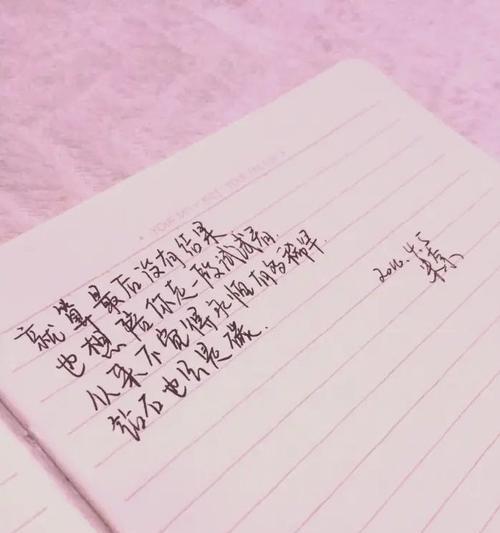 就算最后没有结果
也想陪你走一段试试看
从来不觉得永恒有多稀罕
钻石也只是碳.
2016.4.5